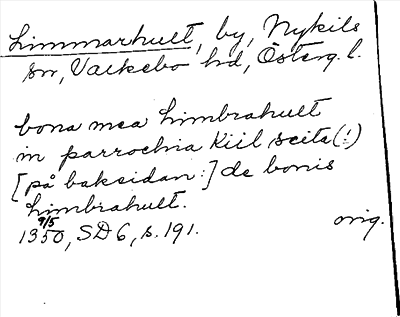 Limmarhult, by, Nykils
sn, Valkebo hd, Österg. l.
bona mea Limbrahult
in parrochia Kiil scita (!)
[på baksidan:] de bonis
Limbrahult.
9/5
1350, SD 6, s. 191. orig.